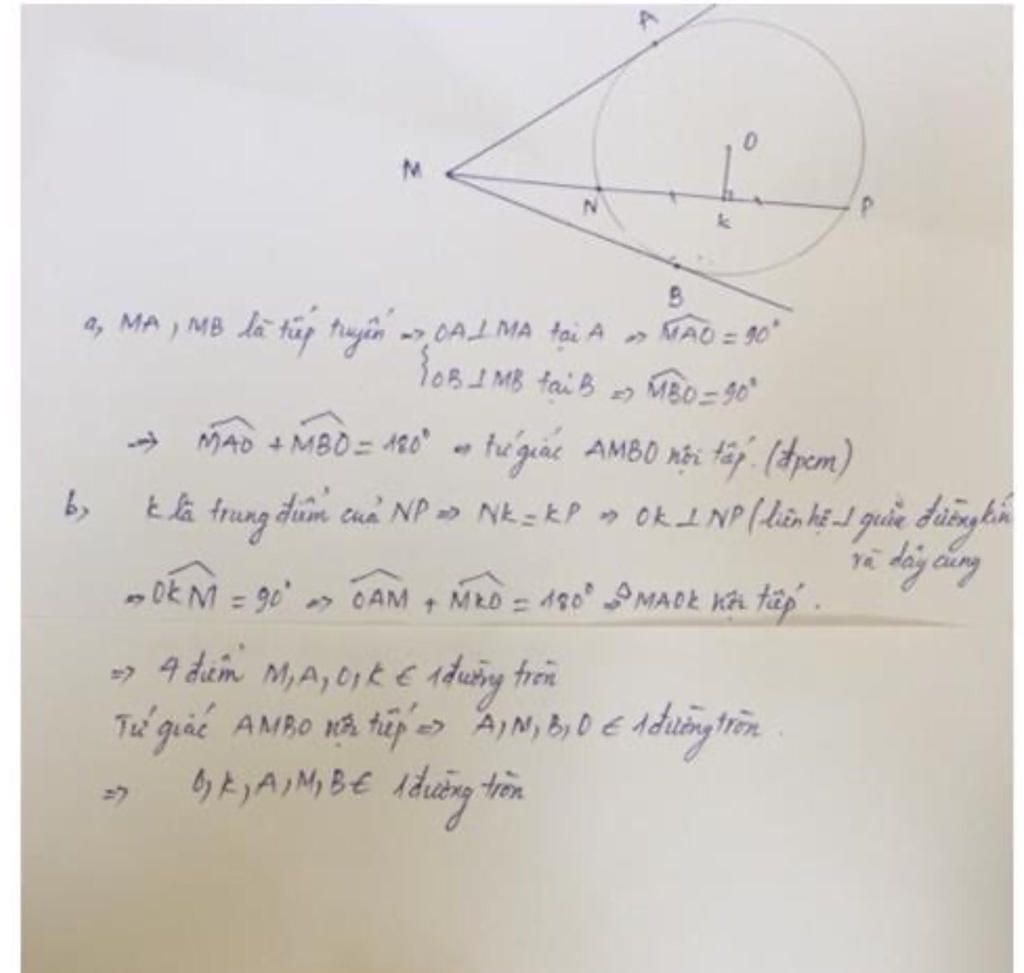 A
O
M
N
K
P
B
a, MA, MB là tiếp tuyến => OA⊥MA tại A => MAO = 90°
{ OB⊥MB tại B => MBO = 90°
=> MAO + MBO = 180° => tứ giác AMBO nội tiếp. (đpcm)
b, K là trung điểm của NP => NK = KP => OK ⊥ NP (liên hệ ⊥ giữa đường kín
và dây cung
=> OKM = 90° => OAM + MKO = 180° => MAOK nội tiếp.
=> 4 điểm M, A, O, K ∈ 1 đường tròn
Tứ giác AMBO nội tiếp => A, M, B, O ∈ 1 đường tròn.
=> O, K, A, M, B ∈ 1 đường tròn